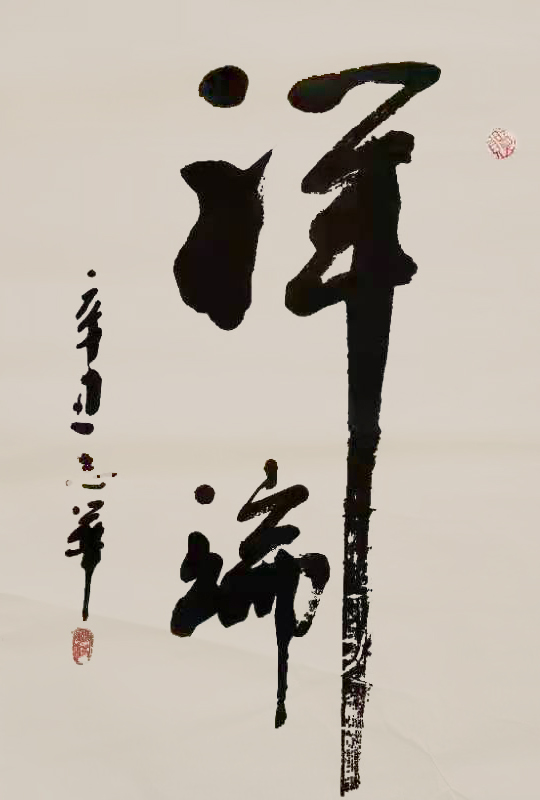 祥瑞
辛丑志华